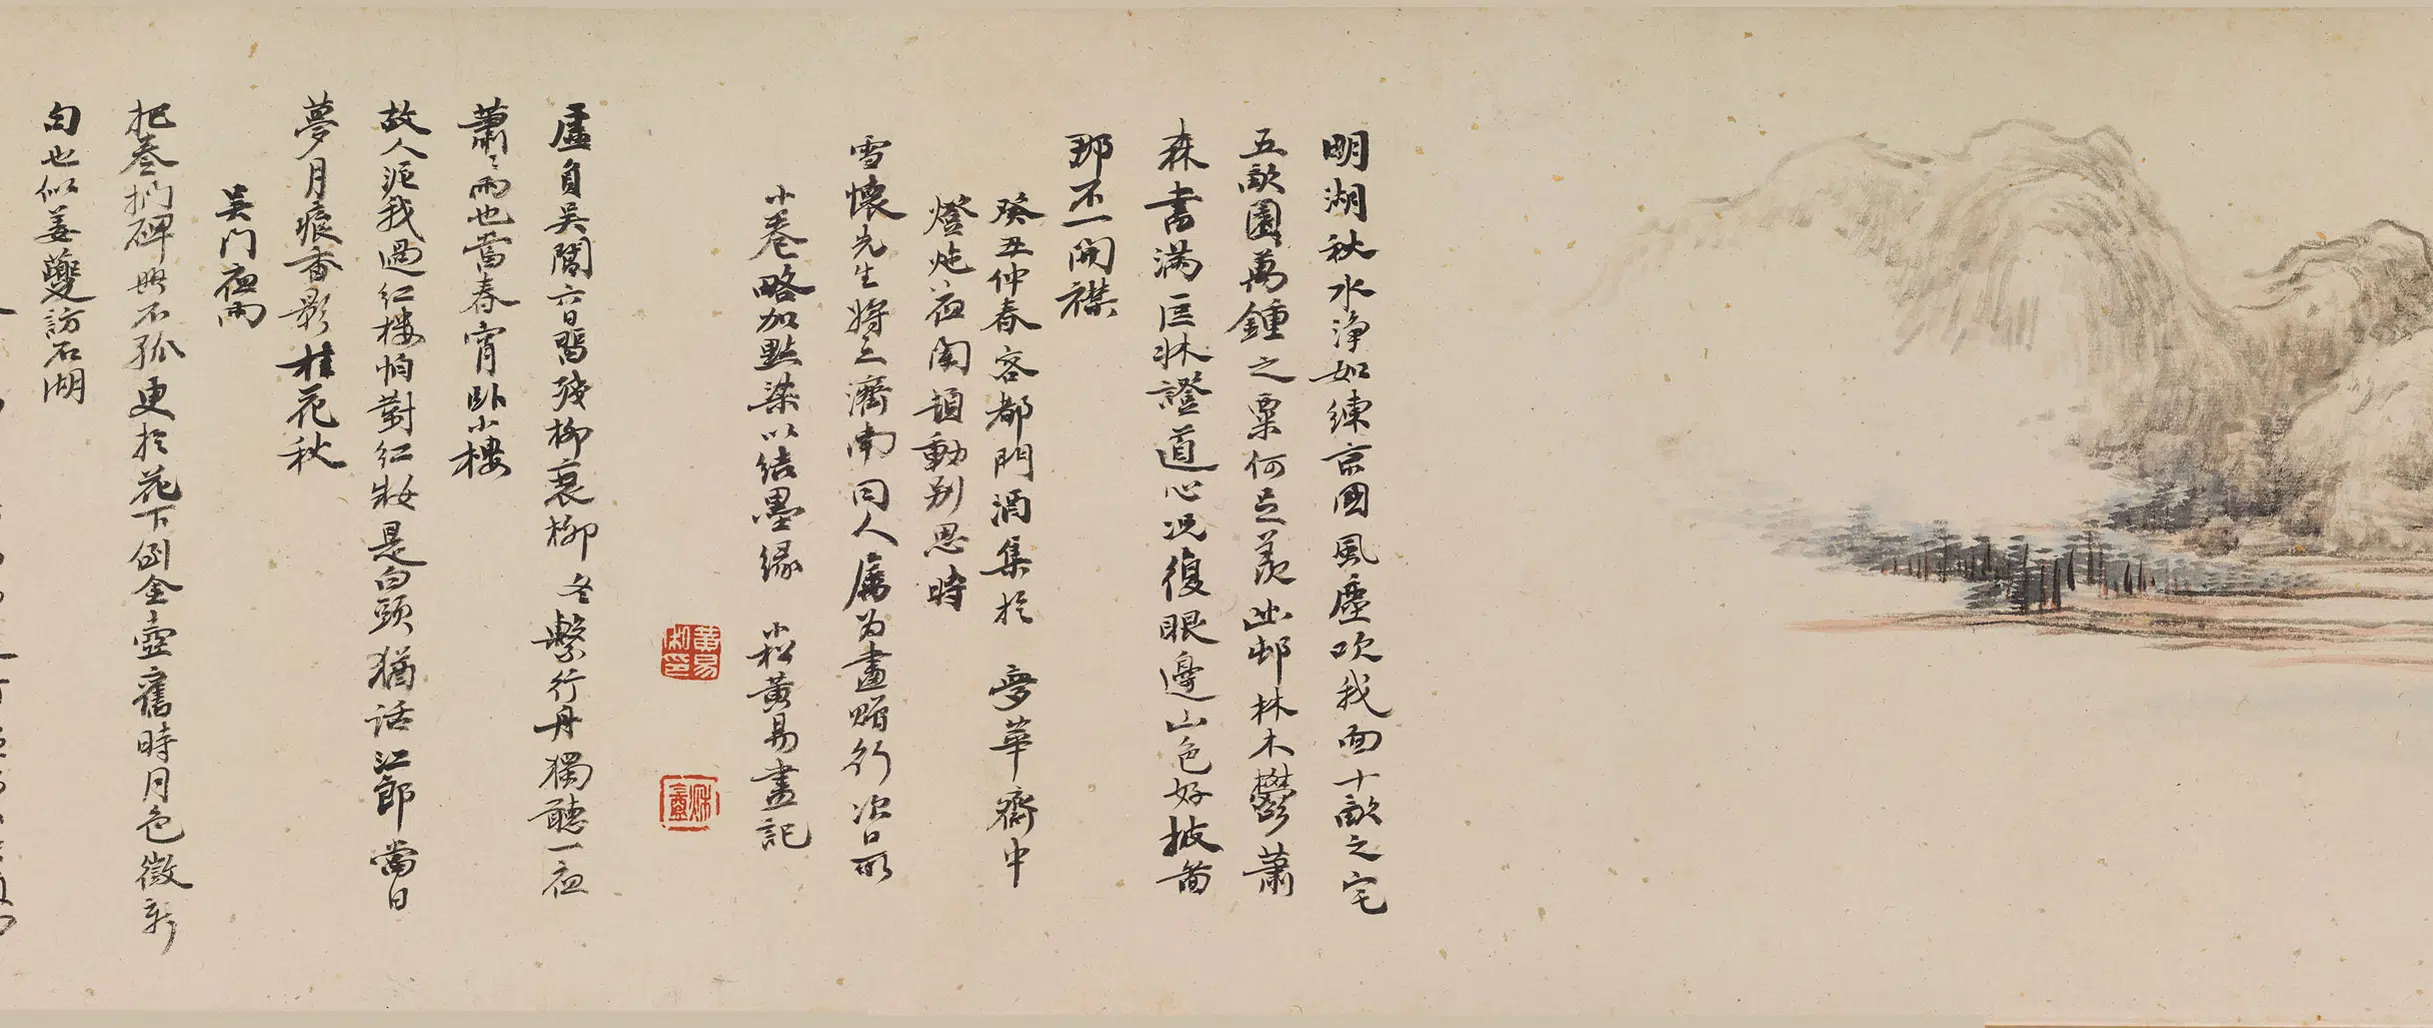 明湖秋水淨如練京國風塵吹我面十畝之宅
五畝園萬鍾之粟何足羨幽邨林木鬱蕭
森書滿匡牀證道心況復眼邊山色好披圖
那不一開襟
癸丑仲春客都門酒集於 夢華齋中
燈炧夜闌頓動別思時
雪懷先生將之濟南同人屬为畫贈行次日所
小卷略加點染以結墨緣 小松黃易畫記
黃易私印
秋盦
虛負吳閶六日留殘柳衰柳冬繫行舟獨聽一夜
蕭〻雨也當春宵臥小樓
故人泥我過紅樓怕對紅妝是白頭猶話江郎當日
夢月痕香影桂花秋
吳門夜雨
把卷捫碑興不孤更於花下倒金壺舊時月色徵新
句也似姜夔訪石湖